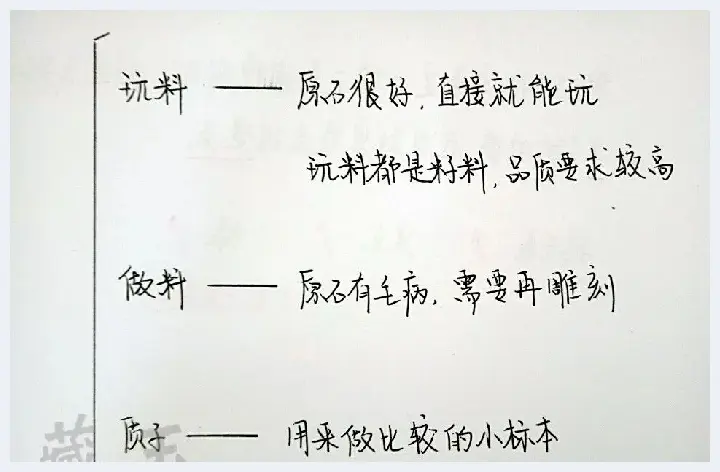 玩料 —— 原石很好，直接就能玩
玩料都是籽料，品质要求较高
做料 —— 原石有毛病，需要再雕刻
质子 —— 用来做比较的小标本